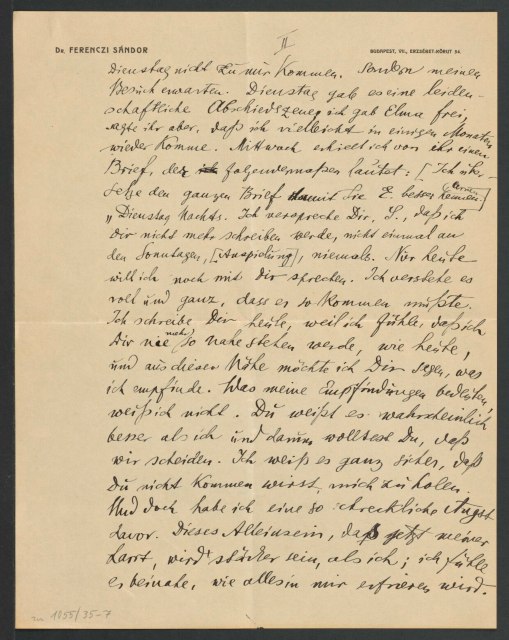 Dr. FERENCZI SÁNDOR
BUDAPEST, VII., ERZSÉBET-KÖRUT 54.
II
Dienstag nicht zu mir kommen. Sondern meinen
Besuch erwarten. Dienstag gab es eine leiden-
schaftliche Abschiedszene; ich gab Elma frei,
sagte ihr aber, daß ich vielleicht in einigen Monaten
wieder komme. Mittwoch erhielt ich von ihr einen
Brief, der folgendermaßen lautet: [Ich über-
setze den ganzen Brief damit Sie E. besser kennen lernen]
„Dienstag Nachts. Ich verspreche Dir, S., daß ich
Dir nicht mehr schreiben werde, nicht einmal an
den Sonntagen, [Anspielung], niemals. Nur heute
will ich noch mit Dir sprechen. Ich verstehe es
voll und ganz, dass es so kommen mußte.
Ich schreibe Dir heute, weil ich fühle, daß ich
Dir nie mehr so nahe stehen werde, wie heute,
und aus dieser Nähe möchte ich Dir sagen, was
ich empfinde. Was meine Empfindungen bedeuten,
weiß ich nicht. Du weißt es wahrscheinlich
besser als ich und darum wolltest Du, daß
wir scheiden. Ich weiß es ganz sicher, daß
Du nicht kommen wirst, mich zu holen.
Und doch habe ich eine so schreckliche Angst
davor. Dieses Alleinsein, das jetzt meiner
harrt, wird stärker sein, als ich; ich fühle
es beinahe, wie alles in mir erfrieren wird.
1055/35-7